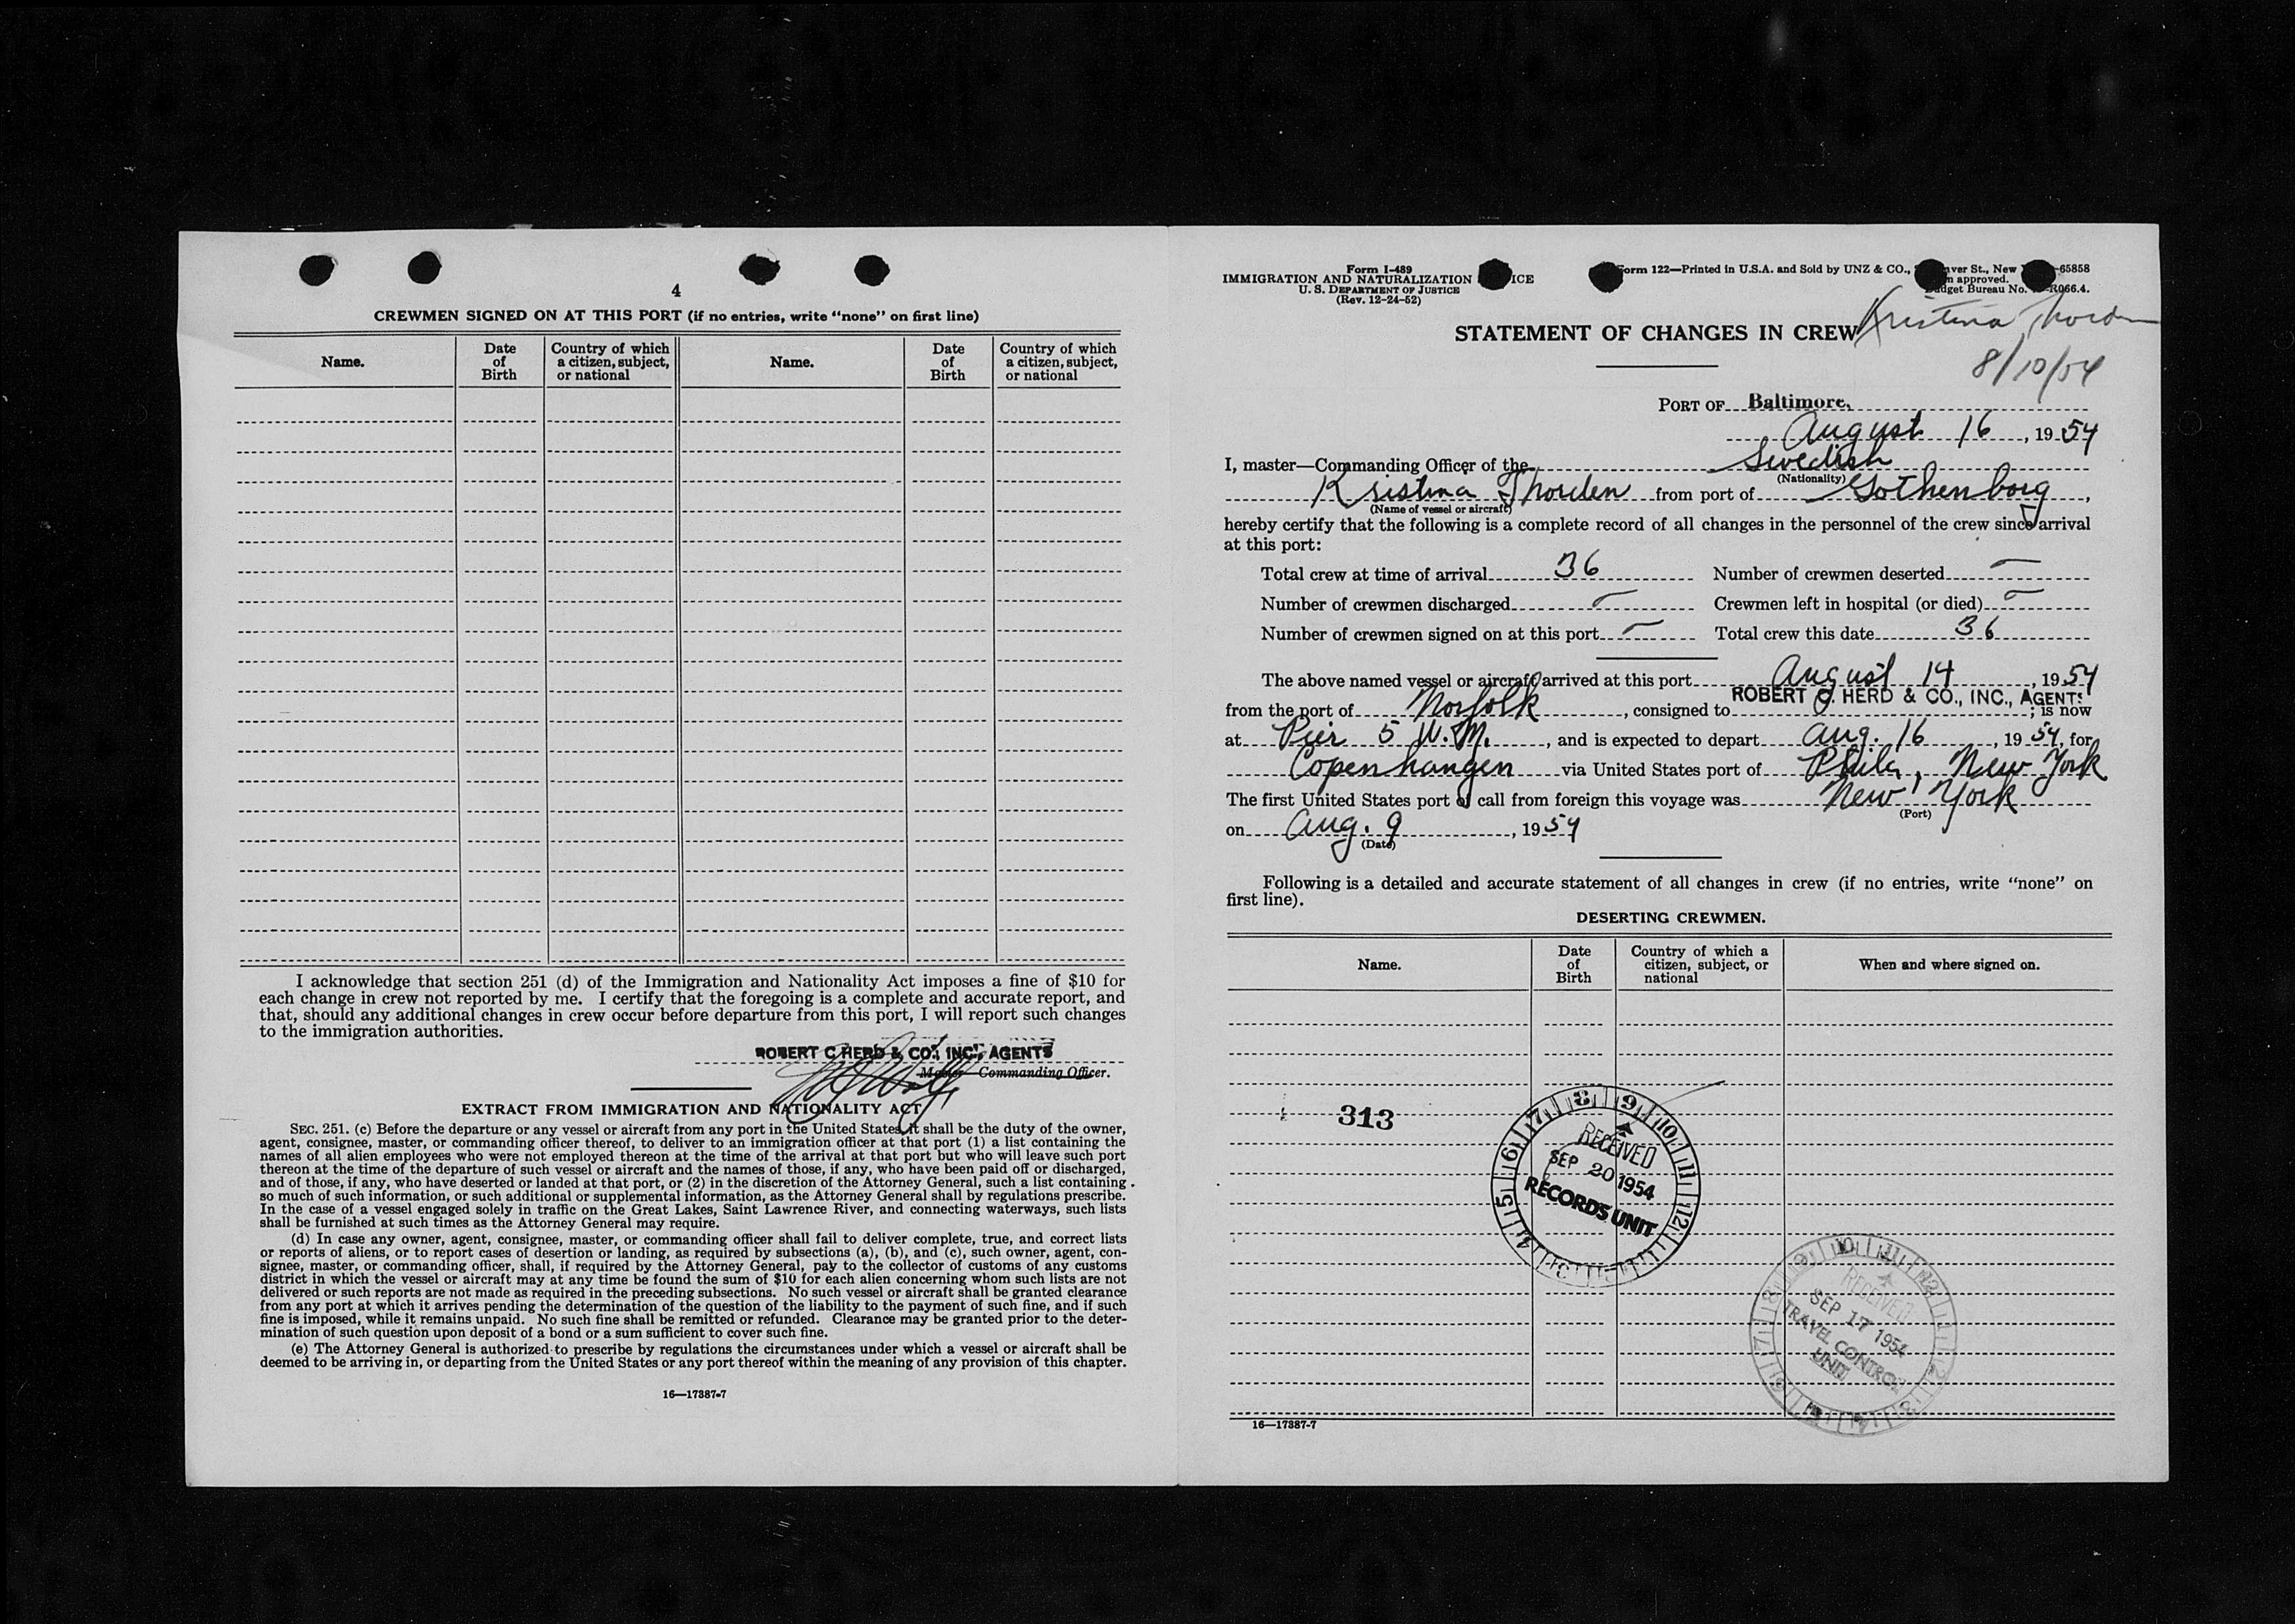 4
CREWMEN SIGNED ON AT THIS PORT (if no entries, write "none" on first line)
Name. Date of Birth Country of which a citizen, subject, or national Name. Date of Birth Country of which a citizen, subject, or national
I acknowledge that section 251 (d) of the Immigration and Nationality Act imposes a fine of $10 for
each change in crew not reported by me. I certify that the foregoing is a complete and accurate report, and
that, should any additional changes in crew occur before departure from this port, I will report such changes
to the immigration authorities.
ROBERT C HERD & CO., INC., AGENTS
Master—Commanding Officer.
EXTRACT FROM IMMIGRATION AND NATIONALITY ACT
SEC. 251. (c) Before the departure or any vessel or aircraft from any port in the United States, it shall be the duty of the owner,
agent, consignee, master, or commanding officer thereof, to deliver to an immigration officer at that port (1) a list containing the
names of all alien employees who were not employed thereon at the time of the arrival at that port but who will leave such port
thereon at the time of the departure of such vessel or aircraft and the names of those, if any, who have been paid off or discharged,
and of those, if any, who have deserted or landed at that port, or (2) in the discretion of the Attorney General, such a list containing
so much of such information, or such additional or supplemental information, as the Attorney General shall by regulations prescribe.
In the case of a vessel engaged solely in traffic on the Great Lakes, Saint Lawrence River, and connecting waterways, such lists
shall be furnished at such times as the Attorney General may require.
(d) In case any owner, agent, consignee, master, or commanding officer shall fail to deliver complete, true, and correct lists
or reports of aliens, or to report cases of desertion or landing, as required by subsections (a), (b), and (c), such owner, agent, con-
signee, master, or commanding officer, shall, if required by the Attorney General, pay to the collector of customs of any customs
district in which the vessel or aircraft may at any time be found the sum of $10 for each alien concerning whom such lists are not
delivered or such reports are not made as required in the preceding subsections. No such vessel or aircraft shall be granted clearance
from any port at which it arrives pending the determination of the question of the liability to the payment of such fine, and if such
fine is imposed, while it remains unpaid. No such fine shall be remitted or refunded. Clearance may be granted prior to the deter-
mination of such question upon deposit of a bond or a sum sufficient to cover such fine.
(e) The Attorney General is authorized to prescribe by regulations the circumstances under which a vessel or aircraft shall be
deemed to be arriving in, or departing from the United States or any port thereof within the meaning of any provision of this chapter.
16—17387-7
Form I-489
IMMIGRATION AND NATURALIZATION ICE
U. S. DEPARTMENT OF JUSTICE
(Rev. 12-24-52)
orm 122—Printed in U.S.A. and Sold by UNZ & CO., ver St., New -65858
approved.
dget Bureau No. R066.4.
STATEMENT OF CHANGES IN CREW
Kristina Thorden
8/10/54
PORT OF Baltimore,
August 16, 1954
I, master—Commanding Officer of the Swedish
(Nationality)
Kristina Thorden from port of Gothenborg,
(Name of vessel or aircraft)
hereby certify that the following is a complete record of all changes in the personnel of the crew since arrival
at this port:
Total crew at time of arrival 36 Number of crewmen deserted —
Number of crewmen discharged — Crewmen left in hospital (or died) —
Number of crewmen signed on at this port — Total crew this date 36
The above named vessel or aircraft arrived at this port August 14, 1954
from the port of Norfolk, consigned to ROBERT C. HERD & CO., INC., AGENTS; is now
at Pier 5 W.M., and is expected to depart Aug. 16, 1954, for
Copenhangen via United States port of Phila, New York
The first United States port of call from foreign this voyage was New York
(Port)
on Aug. 9, 1954
(Date)
Following is a detailed and accurate statement of all changes in crew (if no entries, write "none" on
first line).
DESERTING CREWMEN.
Name. Date of Birth Country of which a citizen, subject, or national When and where signed on.
313
7 8 9 10 11 12 1 2 3 4 5 6
RECEIVED
SEP 20 1954
RECORDS UNIT
RECEIVED
SEP 17 1954
TRAVEL CONTROL
UNIT
16—17387-7